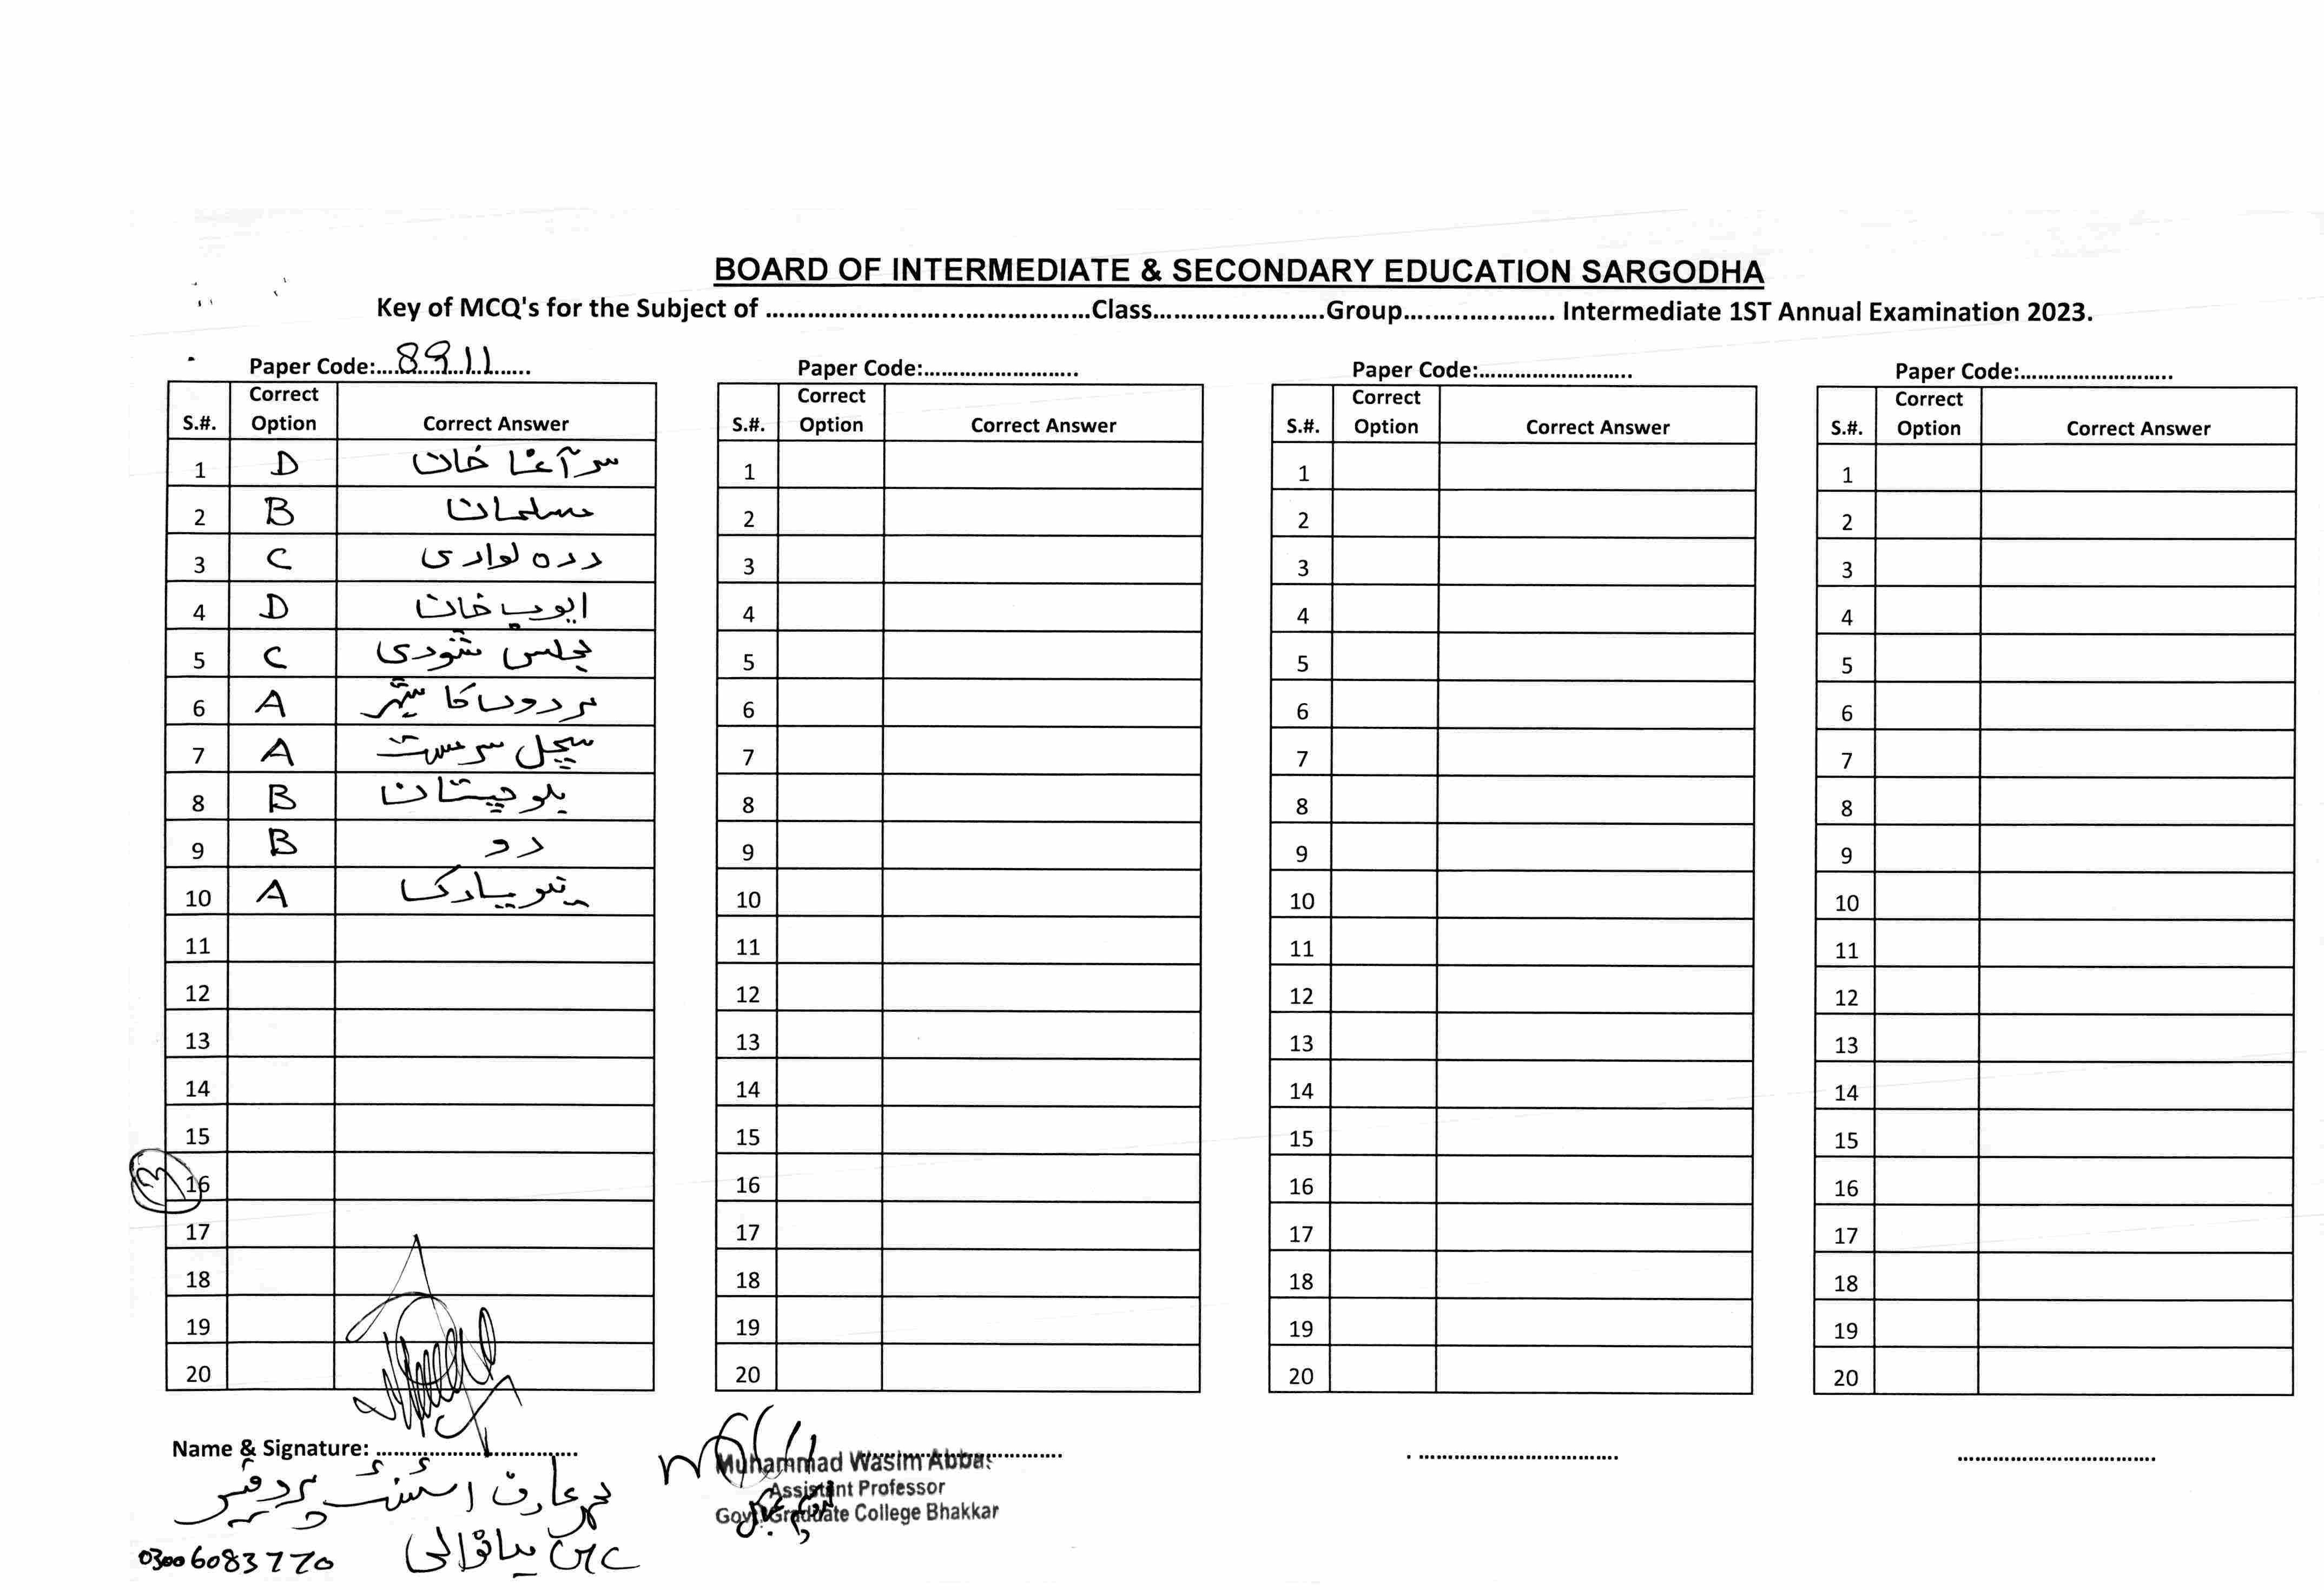 BOARD OF INTERMEDIATE & SECONDARY EDUCATION SARGODHA
Key of MCQ's for the Subject of ....................................Class....................Group.................... Intermediate 1ST Annual Examination 2023.
Paper Code:....8911....
S.#. Correct Option Correct Answer
1 D سر آغا خان
2 B مسلمان
3 C درہ لواری
4 D ایوب خان
5 C مجلس شوریٰ
6 A مردوں کا شہر
7 A سچل سرمست
8 B بلوچستان
9 B دو
10 A نیویارک
11
12
13
14
15
16
17
18
19
20
Paper Code:........................
S.#. Correct Option Correct Answer
1
2
3
4
5
6
7
8
9
10
11
12
13
14
15
16
17
18
19
20
Paper Code:........................
S.#. Correct Option Correct Answer
1
2
3
4
5
6
7
8
9
10
11
12
13
14
15
16
17
18
19
20
Paper Code:........................
S.#. Correct Option Correct Answer
1
2
3
4
5
6
7
8
9
10
11
12
13
14
15
16
17
18
19
20
Name & Signature: ................................
محمد عارف اسسٹنٹ پروفیسر
میانوالی
03006083770
Muhammad Wasim Abbas
Assistant Professor
Govt. Graduate College Bhakkar